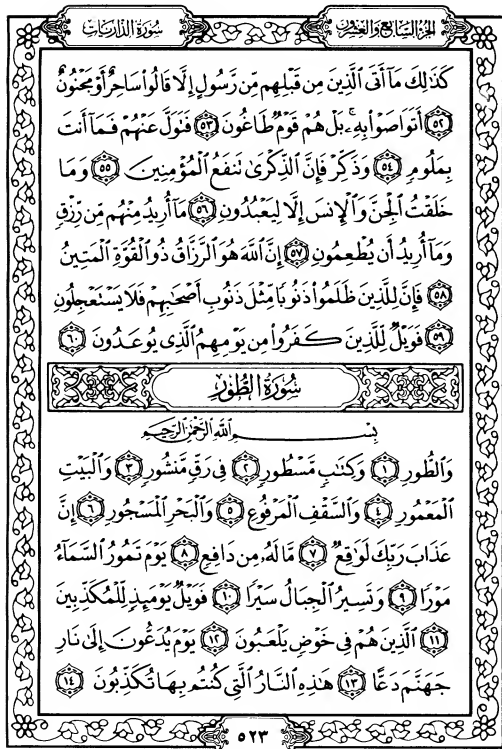 سُورَةُ الذَّارِيَاتِ
الجُزْءُ السَّابِعُ وَالعِشْرُونَ
كَذَٰلِكَ مَآ أَتَى ٱلَّذِينَ مِن قَبْلِهِم مِّن رَّسُولٍ إِلَّا قَالُوا۟ سَاحِرٌ أَوْ مَجْنُونٌ
٥٢ أَتَوَاصَوْا۟ بِهِۦ ۚ بَلْ هُمْ قَوْمٌ طَاغُونَ ٥٣ فَتَوَلَّ عَنْهُمْ فَمَآ أَنتَ
بِمَلُومٍ ٥٤ وَذَكِّرْ فَإِنَّ ٱلذِّكْرَىٰ تَنفَعُ ٱلْمُؤْمِنِينَ ٥٥ وَمَا
خَلَقْتُ ٱلْجِنَّ وَٱلْإِنسَ إِلَّا لِيَعْبُدُونِ ٥٦ مَآ أُرِيدُ مِنْهُم مِّن رِّزْقٍ
وَمَآ أُرِيدُ أَن يُطْعِمُونِ ٥٧ إِنَّ ٱللَّهَ هُوَ ٱلرَّزَّاقُ ذُو ٱلْقُوَّةِ ٱلْمَتِينُ
٥٨ فَإِنَّ لِلَّذِينَ ظَلَمُوا۟ ذَنُوبًا مِّثْلَ ذَنُوبِ أَصْحَٰبِهِمْ فَلَا يَسْتَعْجِلُونِ
٥٩ فَوَيْلٌ لِّلَّذِينَ كَفَرُوا۟ مِن يَوْمِهِمُ ٱلَّذِى يُوعَدُونَ ٦٠
سُورَةُ الطُّورِ
بِسْمِ ٱللَّهِ ٱلرَّحْمَٰنِ ٱلرَّحِيمِ
وَٱلطُّورِ ١ وَكِتَٰبٍ مَّسْطُورٍ ٢ فِى رَقٍّ مَّنشُورٍ ٣ وَٱلْبَيْتِ
ٱلْمَعْمُورِ ٤ وَٱلسَّقْفِ ٱلْمَرْفُوعِ ٥ وَٱلْبَحْرِ ٱلْمَسْجُورِ ٦ إِنَّ
عَذَابَ رَبِّكَ لَوَٰقِعٌ ٧ مَّا لَهُۥ مِن دَافِعٍ ٨ يَوْمَ تَمُورُ ٱلسَّمَآءُ
مَوْرًا ٩ وَتَسِيرُ ٱلْجِبَالُ سَيْرًا ١٠ فَوَيْلٌ يَوْمَئِذٍ لِّلْمُكَذِّبِينَ
١١ ٱلَّذِينَ هُمْ فِى خَوْضٍ يَلْعَبُونَ ١٢ يَوْمَ يُدَعُّونَ إِلَىٰ نَارِ
جَهَنَّمَ دَعًّا ١٣ هَٰذِهِ ٱلنَّارُ ٱلَّتِى كُنتُم بِهَا تُكَذِّبُونَ ١٤
٥٢٣